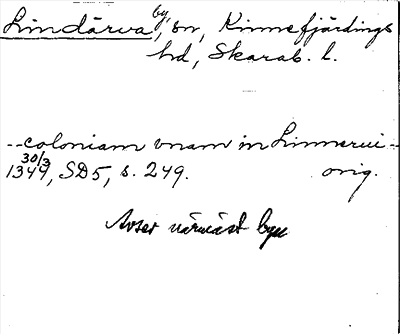 Lindärva by, sn, Kinnefjärdings
hd, Skarab. l.
--coloniam vnam in Linnerui--
30/3 1349, SD5, s. 249. orig.
Avser närmast byn